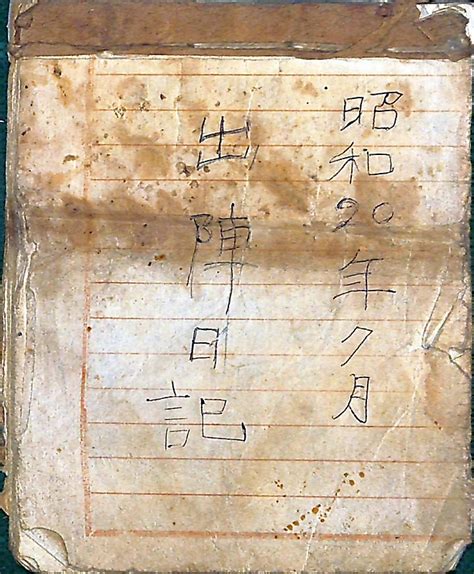 昭和20年7月
出陣日記